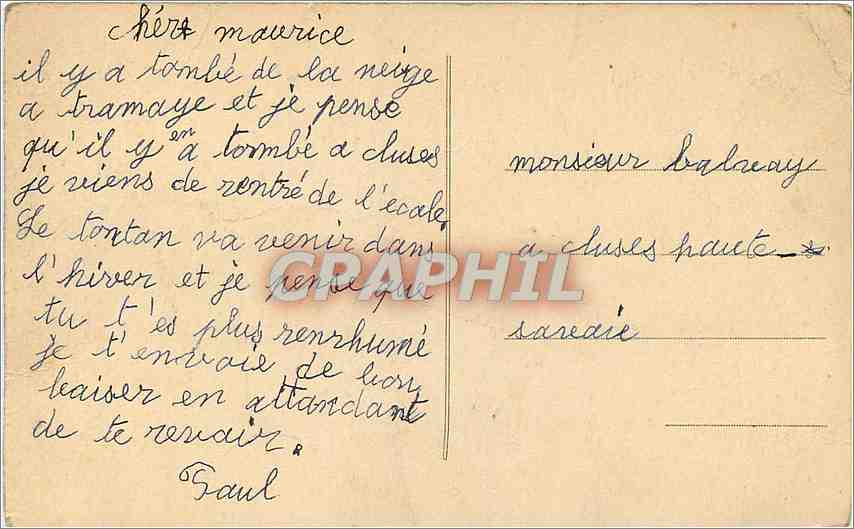 chér maurice
il y a tombé de la neige
a tramaye et je pense
qu'il y en a tombé a cluses
je viens de rentré de l'école.
Le tontan va venir dans
l'hiver et je pense que
tu t'es plus renrhumé
je t'envoie de bon
baiser en attandant
de te revoir.
Paul
monsieur balvay
a cluses haute
savoie
CPAPHIL